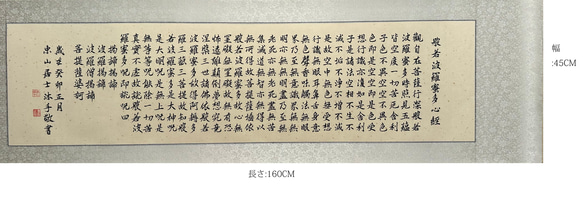 般若波羅蜜多心經
觀自在菩薩行深般若
波羅蜜多時照見五蘊
皆空度一切苦厄舍利
子色不異空空不異色
色即是空空即是色受
想行識亦復如是舍利
子是諸法空相不生不
滅不垢不淨不增不減
是故空中無色無受想
行識無眼耳鼻舌身意
無色聲香味觸法無眼
界乃至無意識界無無
明亦無無明盡乃至無
老死亦無老死盡無苦
集滅道無智亦無得以
無所得故菩提薩埵依
般若波羅蜜多故心無
罣礙無罣礙故無有恐
怖遠離顛倒夢想究竟
涅槃三世諸佛依般若
波羅蜜多故得阿耨多
羅三藐三菩提故知般
若波羅蜜多是大神呪
是大明呪是無上呪是
無等等呪能除一切苦
真實不虛故說般若波
羅蜜多呪即說呪曰
揭諦揭諦
波羅揭諦
波羅僧揭諦
菩提薩婆訶
歲在癸卯五月
東山居士沐手敬書
幅
:45CM
長さ:160CM